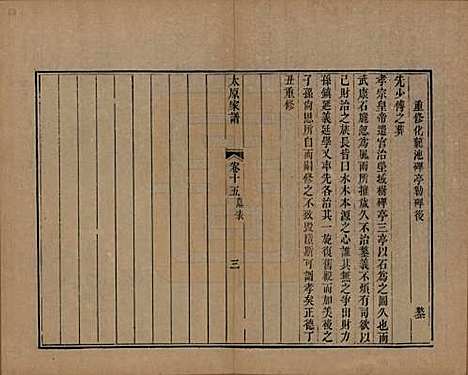 重修化龍池碑亭勒碑後
鏊
先少傅之葬
孝宗皇帝遣官治塋域樹碑亭三亭以石為之圖久也而
武康石脆忽為風雨所摧歲久不治墓義不得專有司欲以
己財治之族長曰木本水源之心誰其無之爭出財力
孫鎮延義延學又率先各治其一旋復舊觀而加美後之
子孫尚思所自而嗣修之不致毀壞斯可謂孝矣正德丁
丑重修
太原家譜
卷十五墓表
三